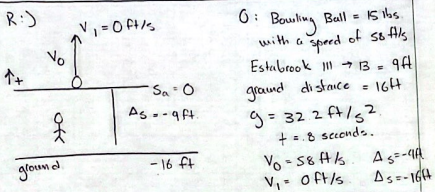 R:)
V₁ = 0 ft/s
V₀
↑+
Sa = 0
Δs = -9 ft.
ground
-16 ft
O: Bowling Ball = 15 lbs
with a speed of 58 ft/s
Estabrook 111 → 13 = 9ft
ground distance = 16ft
g = 32.2 ft/s².
t = .8 seconds.
V₀ = 58 ft/s. Δs = -9ft
V₁ = 0 ft/s Δs = -16ft